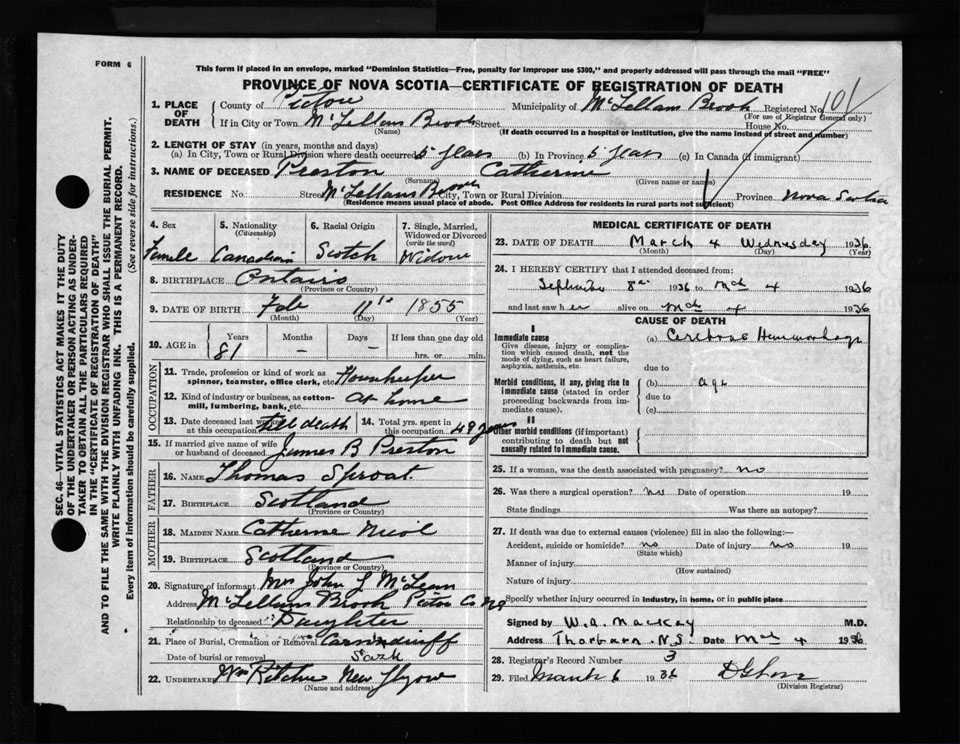 FORM 6
This form if placed in an envelope, marked "Dominion Statistics—Free, penalty for improper use $300," and properly addressed will pass through the mail "FREE"
PROVINCE OF NOVA SCOTIA—CERTIFICATE OF REGISTRATION OF DEATH
1. PLACE OF DEATH County of Pictou Municipality of McLellans Brook Registered No. 101
(For use of Registrar General only)
If in City or Town McLellans Brook Street House No.
(Name) (If death occurred in a hospital or institution, give the name instead of street and number)
2. LENGTH OF STAY (in years, months and days)
(a) In City, Town or Rural Division where death occurred 5 years (b) In Province 5 years (c) In Canada (if immigrant)
3. NAME OF DECEASED Preston Catherine
(Surname) (Given name or names)
RESIDENCE No. Street McLellans Brook City, Town or Rural Division Province Nova Scotia
(Residence means usual place of abode. Post Office Address for residents in rural parts not sufficient)
4. Sex 5. Nationality (Citizenship) 6. Racial Origin 7. Single, Married, Widowed or Divorced (write the word)
Female Canadian Scotch Widow
8. BIRTHPLACE Ontario
(Province or Country)
9. DATE OF BIRTH Feb 11th 1855
(Month) (Day) (Year)
10. AGE in Years Months Days If less than one day old
81 – – hrs. or min.
OCCUPATION
11. Trade, profession or kind of work as spinner, teamster, office clerk, etc. Housekeeper
12. Kind of industry or business, as cotton-mill, lumbering, bank, etc. At home
13. Date deceased last worked at this occupation till death 14. Total yrs. spent in this occupation 48 years
15. If married give name of wife or husband of deceased James B Preston
FATHER
16. NAME Thomas Sproat
17. BIRTHPLACE Scotland
(Province or Country)
MOTHER
18. MAIDEN NAME Catherine Nicol
19. BIRTHPLACE Scotland
(Province or Country)
20. Signature of informant Mrs John J McLean
Address McLellans Brook Pictou Co NS
Relationship to deceased Daughter
21. Place of Burial, Cremation or Removal Carnduff
Date of burial or removal Sask
22. UNDERTAKER Wm Ritchie New Glasgow
(Name and address)
MEDICAL CERTIFICATE OF DEATH
23. DATE OF DEATH March 4 Wednesday 1936
(Month) (Day) (Year)
24. I HEREBY CERTIFY that I attended deceased from:
September 8th 1936 to Mch 4 1936
and last saw her alive on Mch 4 1936
CAUSE OF DEATH
I
Immediate cause (a) Cerebral Hemorrhage
Give disease, injury or complication which caused death, not the mode of dying, such as heart failure, asphyxia, asthenia, etc.
due to
Morbid conditions, if any, giving rise to immediate cause (stated in order proceeding backwards from immediate cause). (b) age
due to
(c)
II
Other morbid conditions (if important) contributing to death but not causally related to immediate cause.
25. If a woman, was the death associated with pregnancy? no
26. Was there a surgical operation? no Date of operation 19
State findings Was there an autopsy?
27. If death was due to external causes (violence) fill in also the following:
Accident, suicide or homicide? no Date of injury no 19
(State which)
Manner of injury
(How sustained)
Nature of injury
Specify whether injury occurred in industry, in home, or in public place
Signed by W.A. MacKay M.D.
Address Thorburn N.S. Date Mch 4 1936
28. Registrar's Record Number 3
29. Filed March 6 1936
(Division Registrar)
SEC. 46—VITAL STATISTICS ACT MAKES IT THE DUTY
OF THE UNDERTAKER OR PERSON ACTING AS UNDER-
TAKER TO OBTAIN ALL THE PARTICULARS REQUIRED
IN THE "CERTIFICATE OF REGISTRATION OF DEATH"
AND TO FILE THE SAME WITH THE DIVISION REGISTRAR WHO SHALL ISSUE THE BURIAL PERMIT.
WRITE PLAINLY WITH UNFADING INK. THIS IS A PERMANENT RECORD.
Every item of information should be carefully supplied. (See reverse side for instructions.)